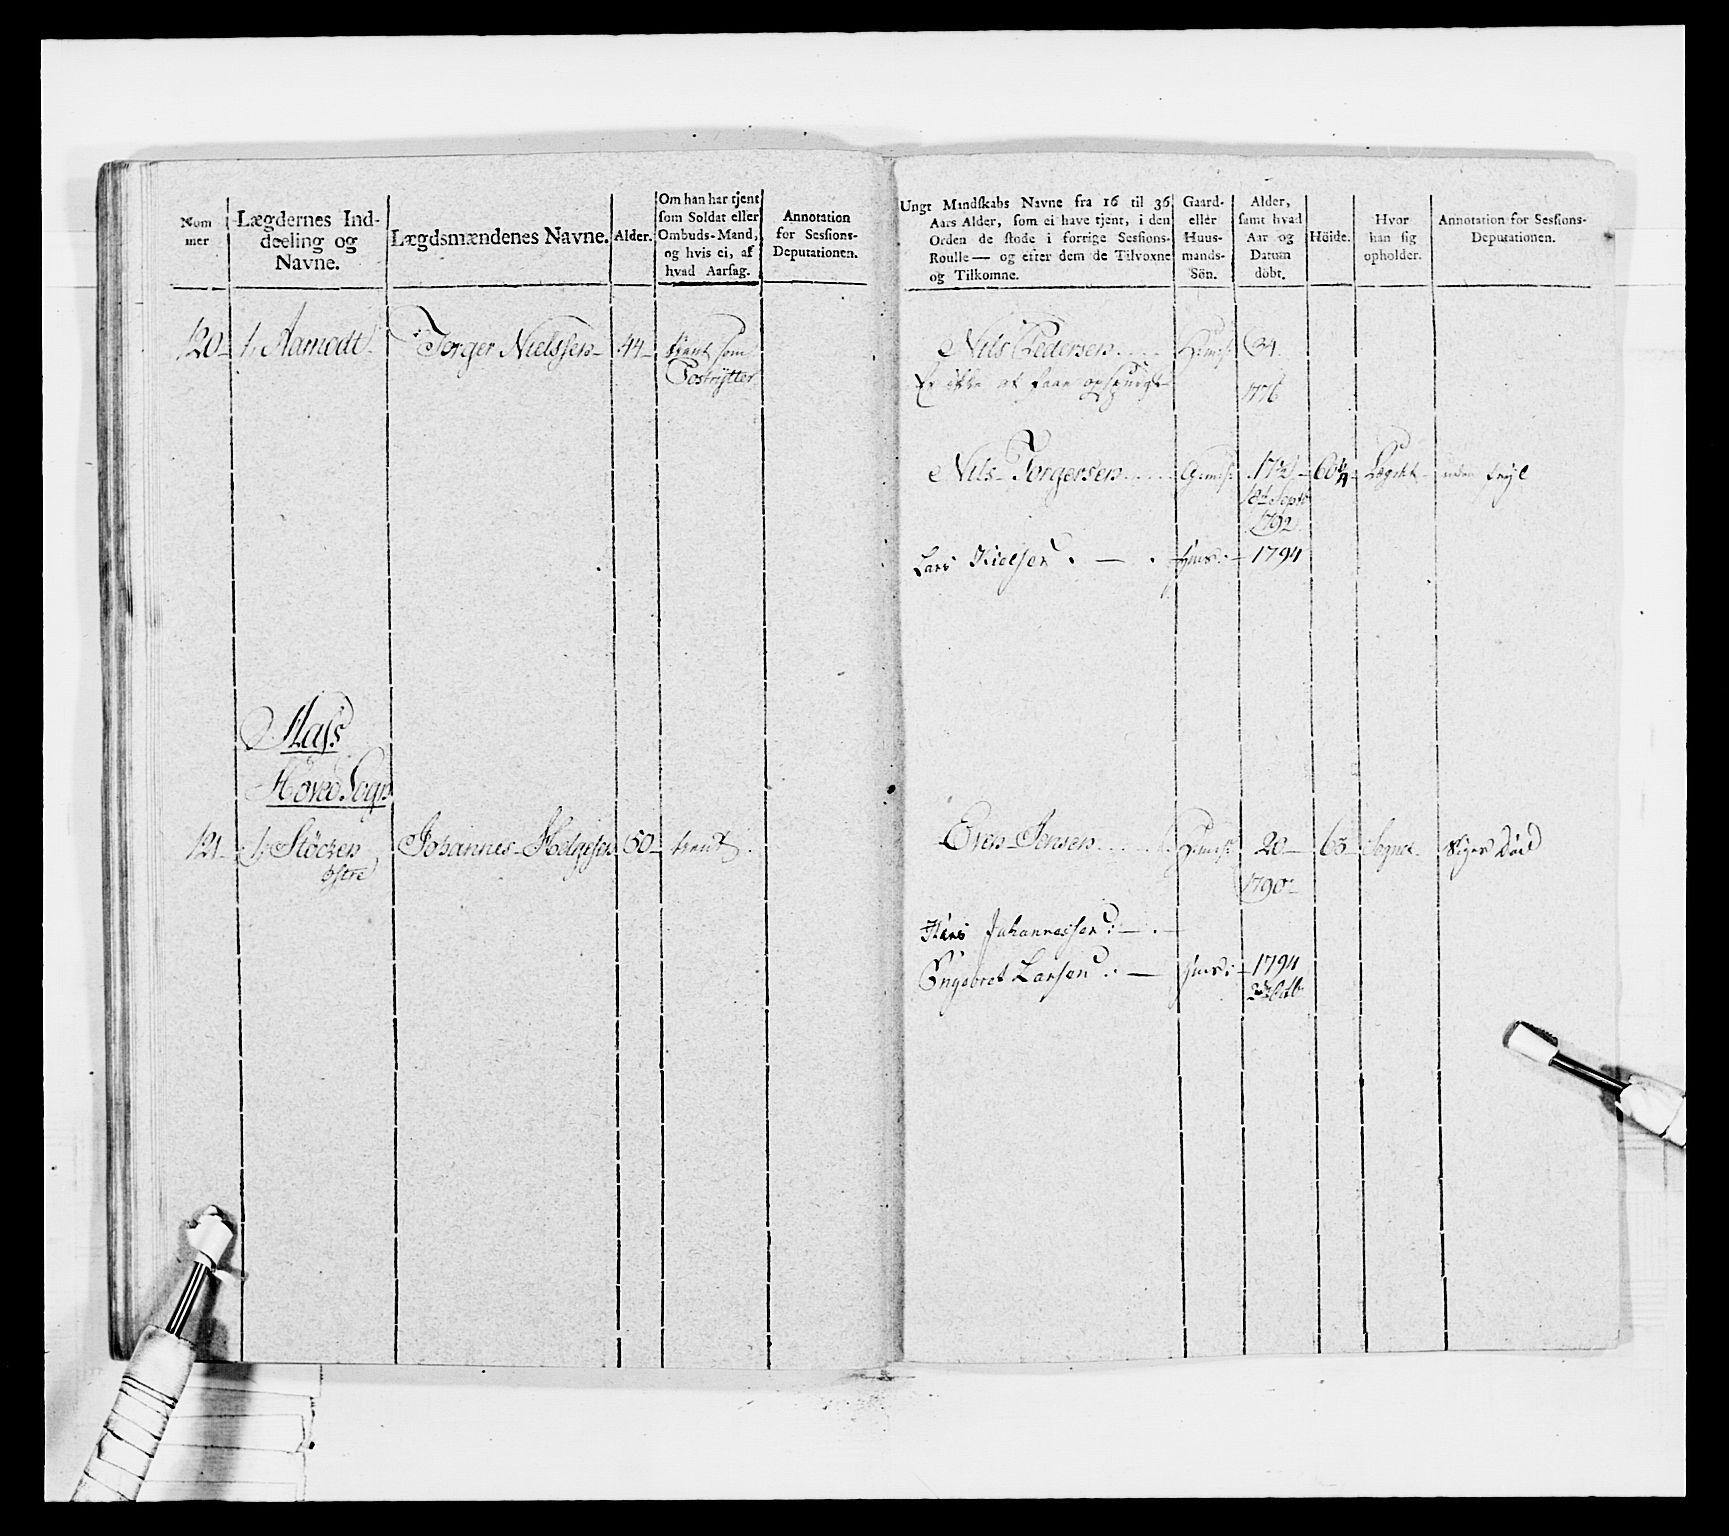 Nom
mer
Lægdernes Ind-
deeling og
Navne.
Lægdsmændenes Navne.
Alder.
Om han har tjent
som Soldat eller
Ombuds-Mand,
og hvis ei, af
hvad Aarsag.
Annotation
for Sessions-
Deputationen.
120 - 1, Aamodt - Torger Nielssen - 44 - tient som
Postrytter
Aas
Hoved Sogn
121 - 1, Støcken Johannes Helgesen 50 - tient.
østre
Ungt Mandskabs Navne fra 16 til 36
Aars Alder, som ei have tjent, i den
Orden de stode i forrige Sessions-
Roulle — og efter dem de Tilvoxne
og Tilkomne.
Gaard-
eller
Huus-
mands-
Sön.
Alder,
samt hvad
Aar og
Datum
döbt.
Höide.
Hvor
han sig
opholder.
Annotation for Sessions-
Deputationen.
Nils Pedersen 34
Er ikke at faae opspurgt
1776
Nils Torgersen Lægdet
18d Septr
1792
Lars Nielsen . — . Hms: - 1794
Even Jensen 20 - 65 Sognet. Siges Død
1790
Hans Johannessen : — . —
Engebret Larsen . : — Hms: - 1794